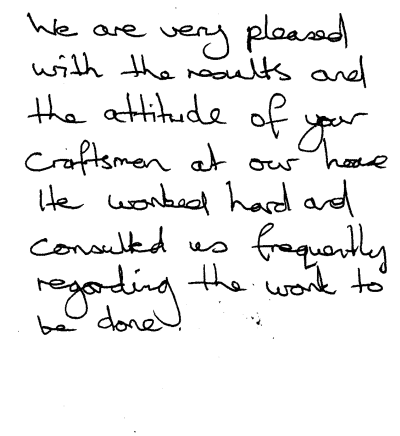 We are very pleased
with the results and
the attitude of your
Craftsmen at our house
He worked hard and
consulted us frequently
regarding the work to
be done.